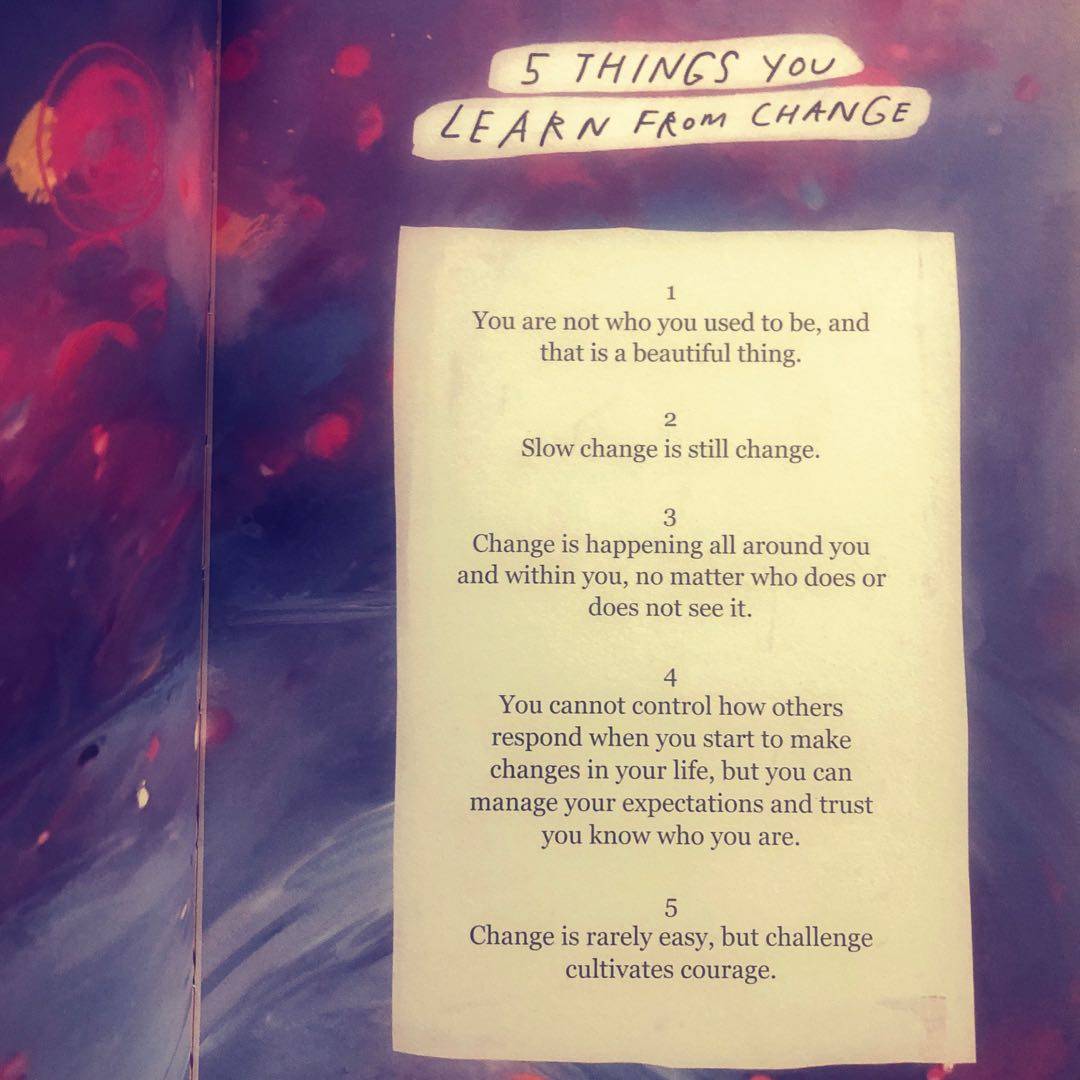 5 THINGS YOU
LEARN FROM CHANGE
1
You are not who you used to be, and
that is a beautiful thing.
2
Slow change is still change.
3
Change is happening all around you
and within you, no matter who does or
does not see it.
4
You cannot control how others
respond when you start to make
changes in your life, but you can
manage your expectations and trust
you know who you are.
5
Change is rarely easy, but challenge
cultivates courage.